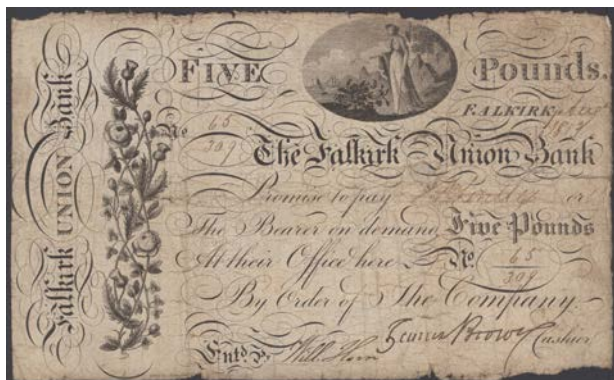 Falkirk UNION Bank
FIVE Pounds.
FALKIRK
No 65
309
The Falkirk Union Bank
Promise to pay or
The Bearer on demand Five Pounds
At their Office here No. 65
309
By Order of The Company.
Entd. Will Cashier